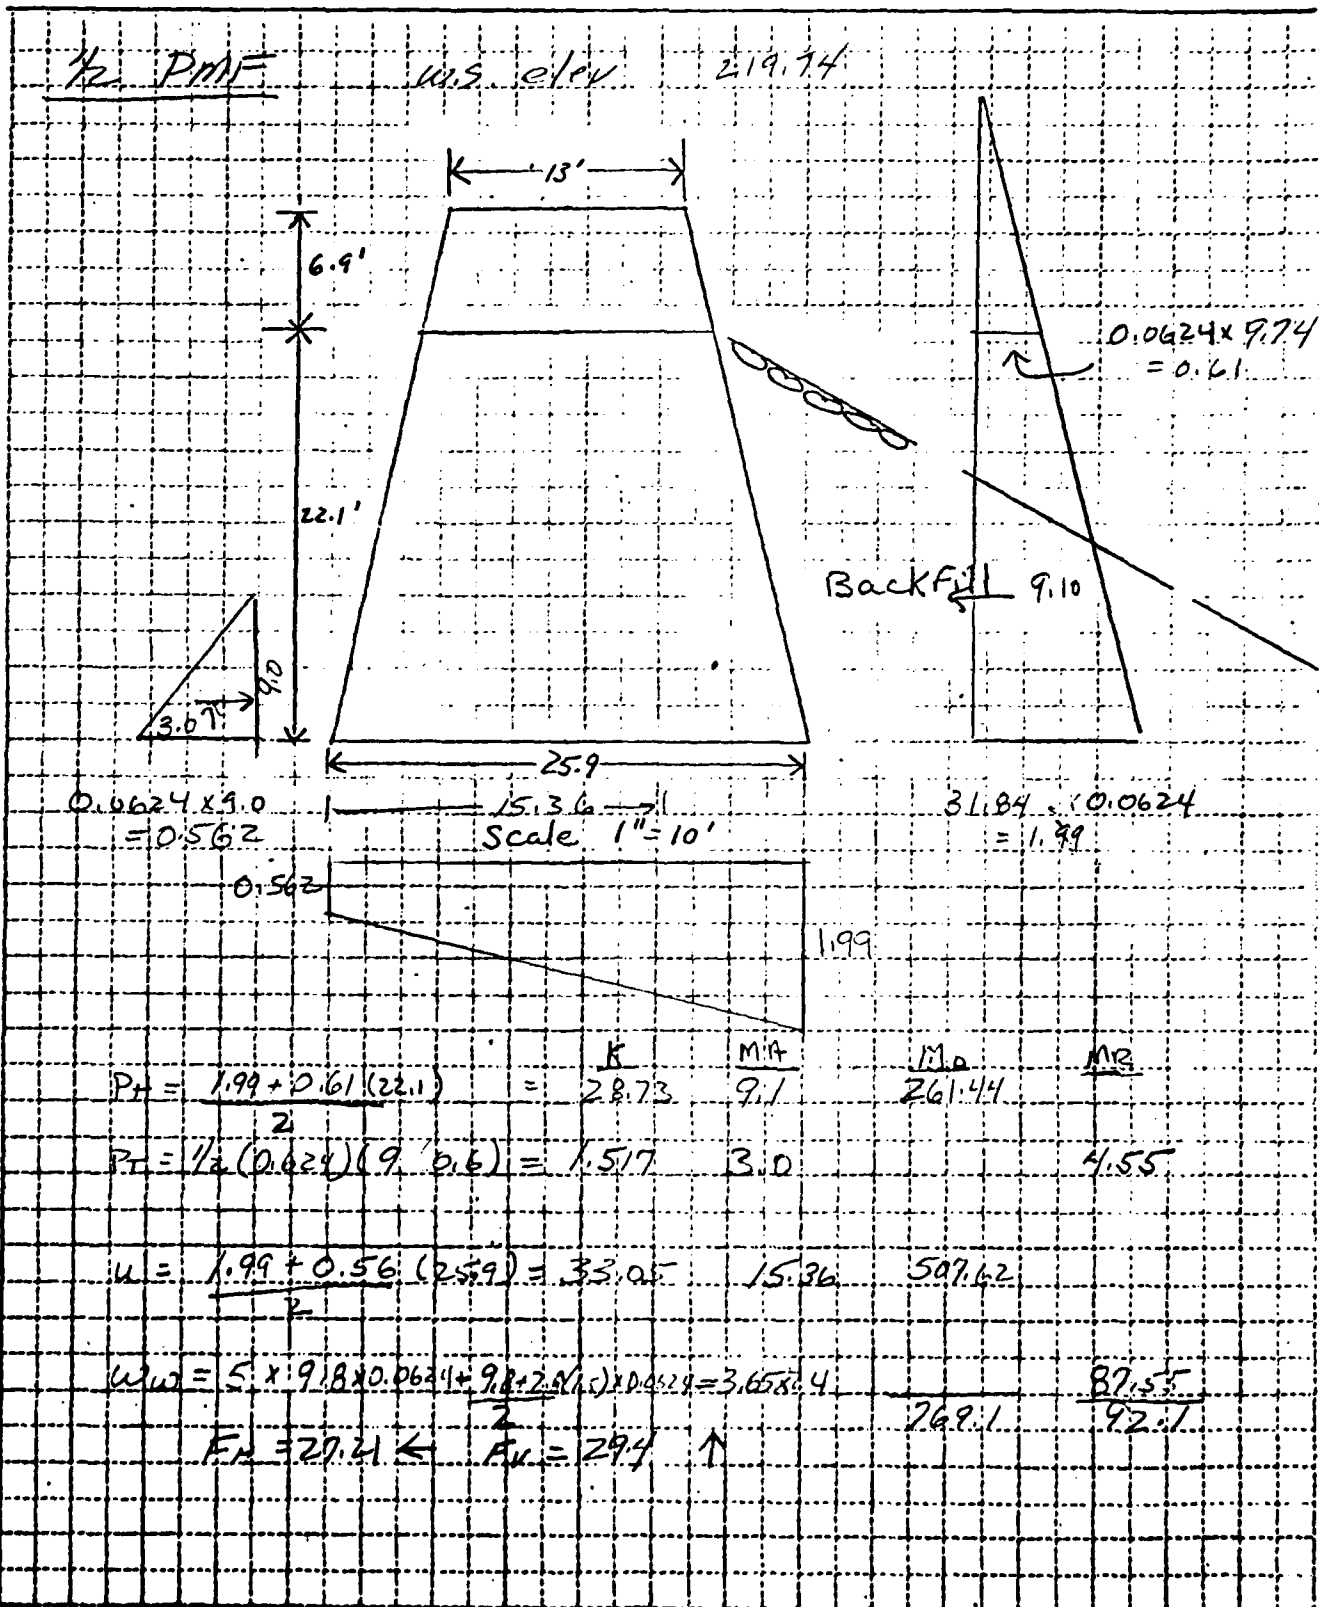 1/2 PMF w.s. elev 219.74
13'
6.9'
0.0624 x 9.74
= 0.61
22.1'
BackFill 9.10
9.0
3.0
25.9
0.0624 x 9.0
= 0.562
15.36
Scale 1" = 10'
31.84 x 0.0624
= 1.99
0.562
1.99
K M.A Mo MR
PH = 1.99 + 0.61 (22.1) = 28.73 9.1 261.44
2
PT = 1/2 (0.624)(9 0.6) = 1.517 3.0 4.55
u = 1.99 + 0.56 (25.9) = 33.05 15.36 507.62
2
Ww = 5 x 9.8 x 0.0624 + = 3.658 4 87.55
2 769.1 92.1
FH = 27.21 ← FV = 29.4 ↑